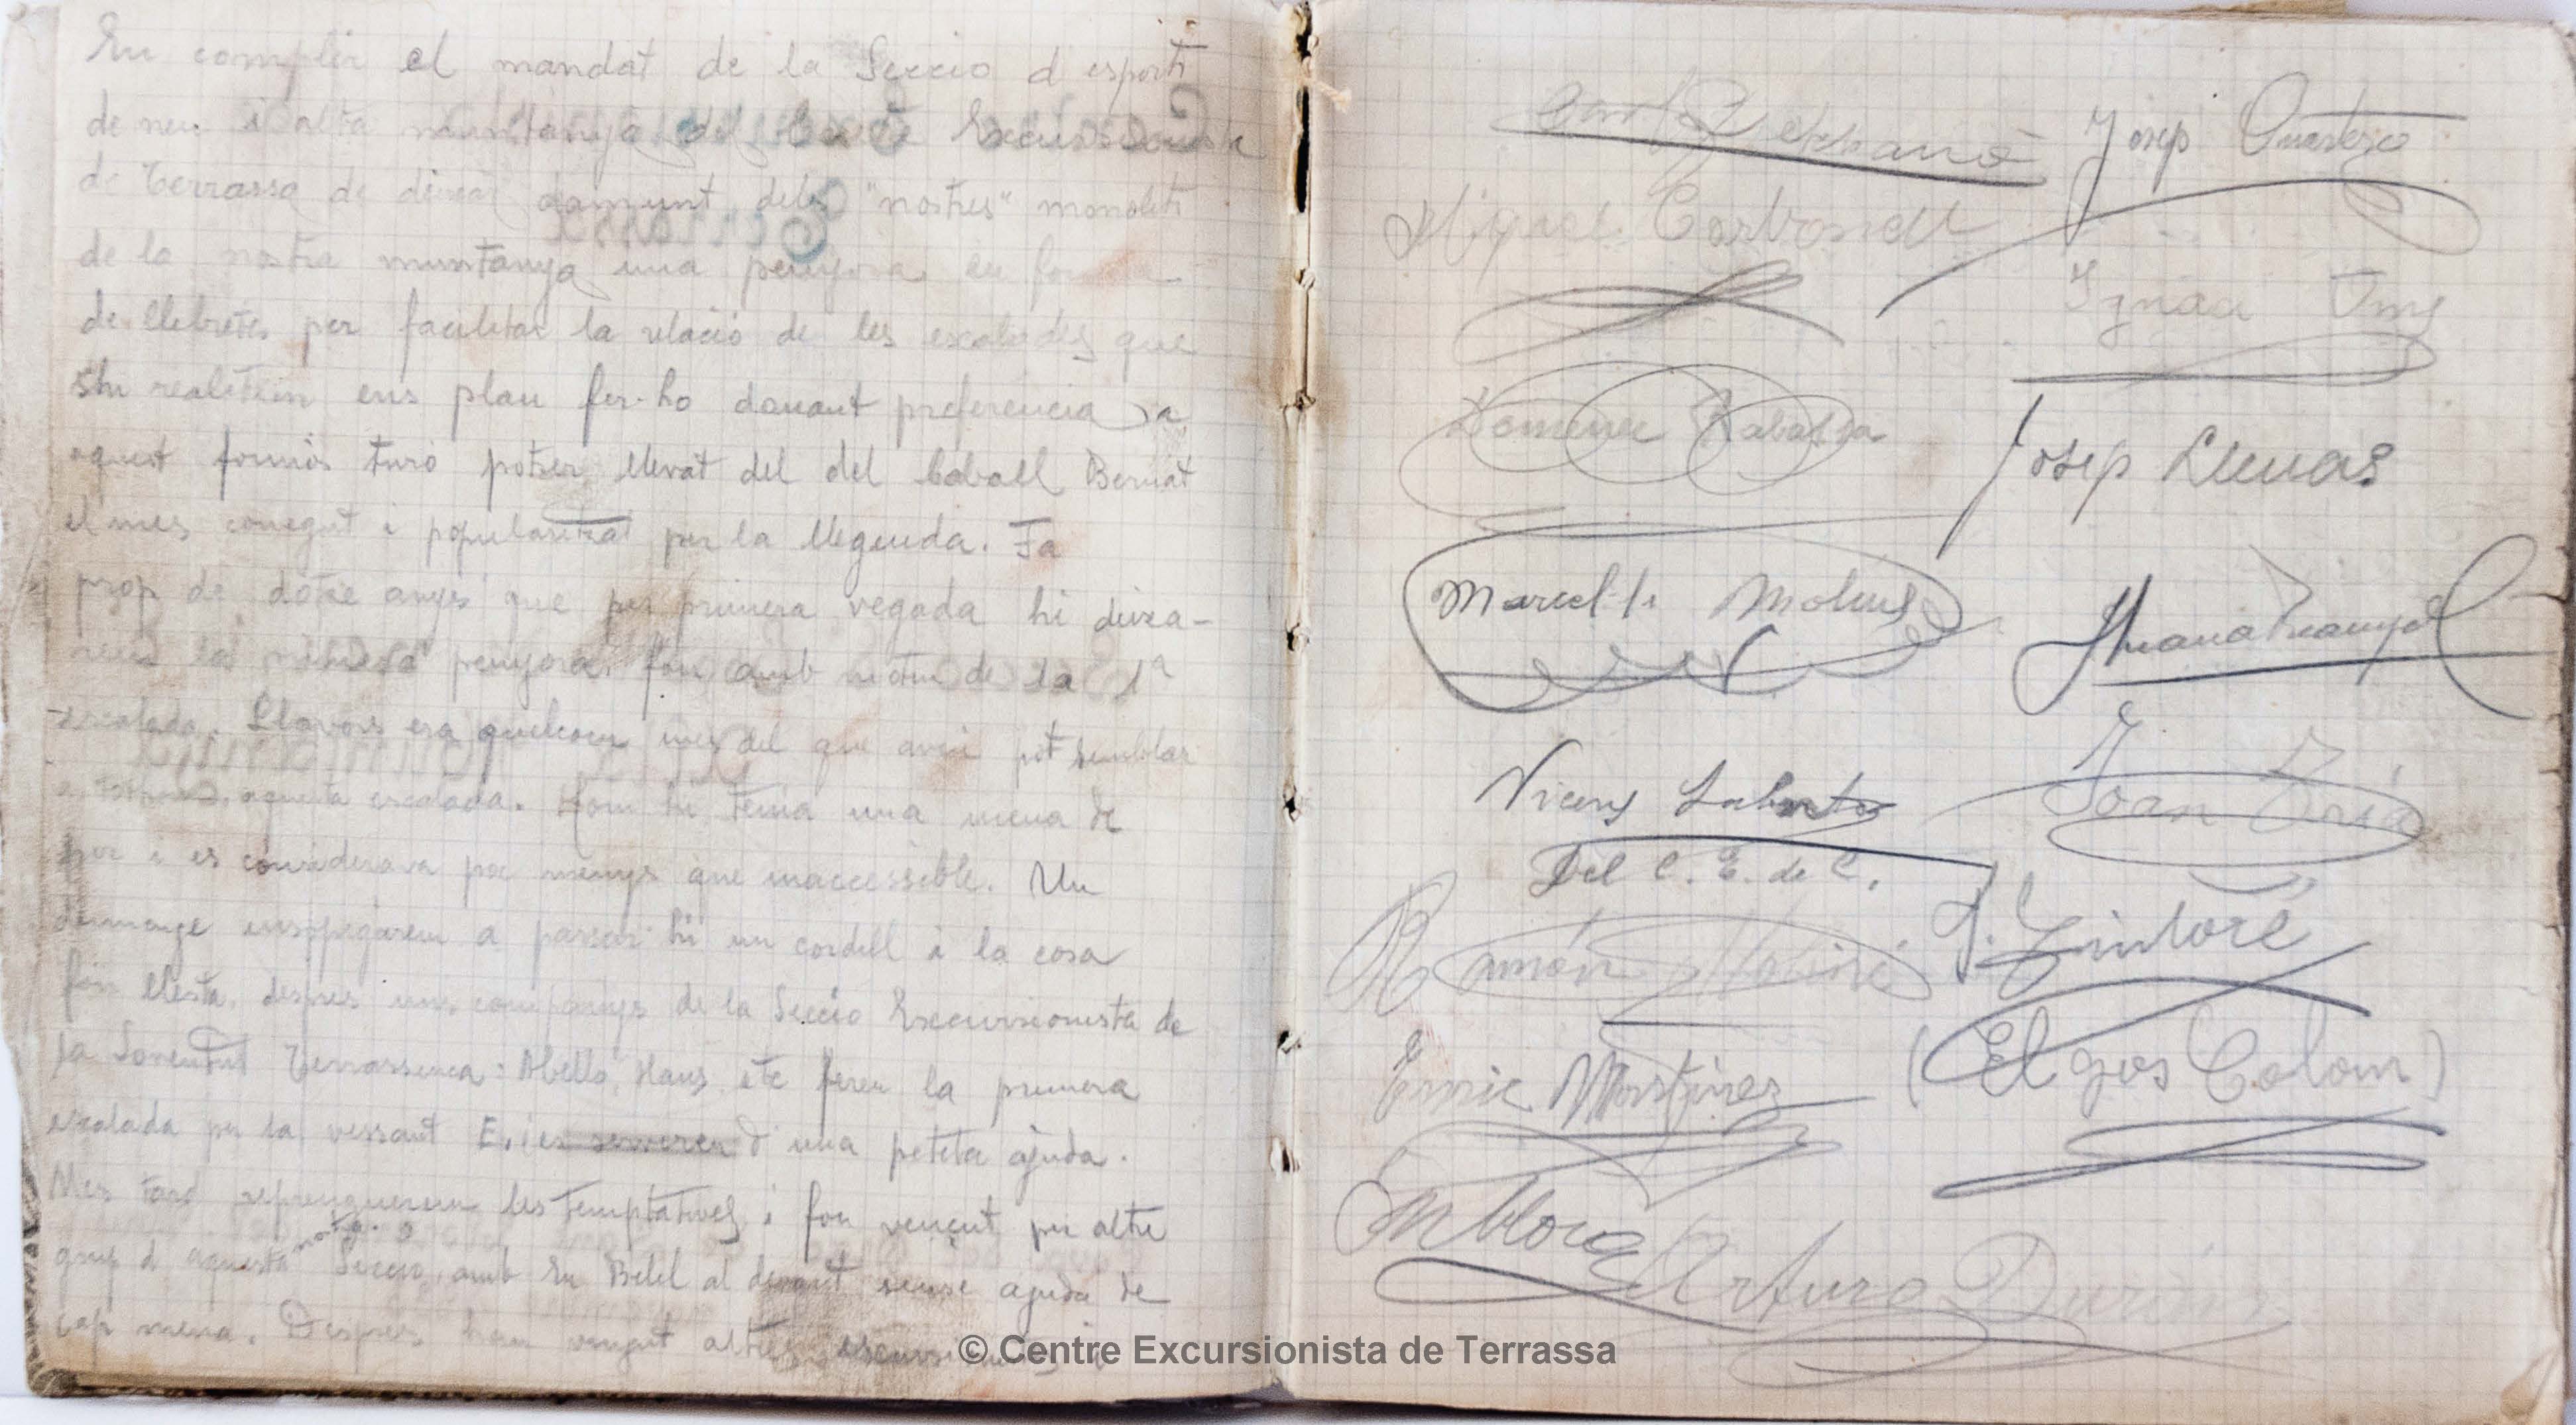 En complir el mandat de la Seccio d esports
de neu i alta muntanya del Centre Excursionista
de Terrassa de deixar damunt dels "nostres" monolits
de la nostra muntanya una penyora en forma
de llibretes per facilitar la relació de les escalades que
s'hi realitzin ens plau fer-ho donant preferencia a
aquest formós turó potser llevat del del Caball Bernat
el mes conegut i popularitzat per la llegenda. Fa
prop de dotze anys que per primera vegada hi deixa-
rem la primera penyora, fou amb motiu de la 1ª
escalada. Llavors era quelcom mes del que avui pot semblar
a tothom, aquesta escalada. Hom hi tenia una mena de
por i es considerava poc menys que inaccessible. Un
diumenge ensopegarem a passar-hi un cordill i la cosa
fou llesta, despres uns companys de la Seccio Excursionista de
la Joventut Terrassenca: Abelló, Haus, etc feren la primera
escalada per la vessant E. i es serviren d'una petita ajuda.
Mes tard reprenguerem les temptatives i fou vençut per altre
grup d aquesta nostra Seccio, amb En Belil al devant sense ajuda de
cap mena. Despres han vingut altres
Josep
Miquel Carbonell
Ignaci Oms
Domenec Rabassa
Josep Llenas
Marcel·lí Molins
Vicens
Joan
Del C. E. de C.
Ramón
J. Tintoré
Enric Martinez
(El gos Colom)
Arturo Durán
© Centre Excursionista de Terrassa